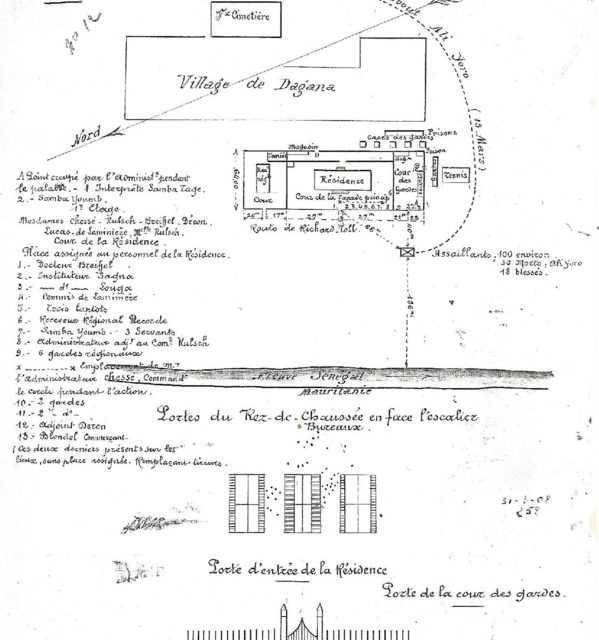 No 12
Cimetière
Village de Dagana
Nord
Ali Yoro
(15 Mars)
Prisons
Cases des gardes
Magasin
Prison
Cour
Résidence
Cour des Gardes
Tennis
Cour de la façade princip
Route de Richard Toll.
Assaillants, 100 environ
30 Morts, Ali Yoro
18 blessés.
A Point occupé par l'Administ pendant
le palabre. - 1 Interprète Samba Tage.
2. - Samba Youmb.
1er Etage.
Mesdames Chessé - Hulsch - Breiffel, Déron.
Lucas, de Laminière, Mlle Hulsch.
Cour de la Résidence.
Place assignée au personnel de la Résidence.
1. - Docteur Breiffel
2. - Instituteur Sagna
3. - d° - Souga
4. - Commis de Laminière
5. - Trois Laptots
6. - Receveur Régional
7. - Samba Youmb - 3 Servants
8. - Administrateur adjt au Comt Hulsch
9. - 6 gardes régionaux
x x Emplacement de Mr
l'Administrateur Chessé, Commandt
le cercle pendant l'action.
10. - 3 gardes
11. - 2 - d° -
12. - Adjoint Deron
13. - Blondel Commerçant.
(Ces deux derniers présents sur les
lieux, sans place assignée. Remplaçans-tireurs.
Fleuve Sénégal
Mauritanie
Portes du Rez-de-Chaussée en face l'escalier
Bureaux.
Porte d'entrée de la Résidence
Porte de la cour des gardes.